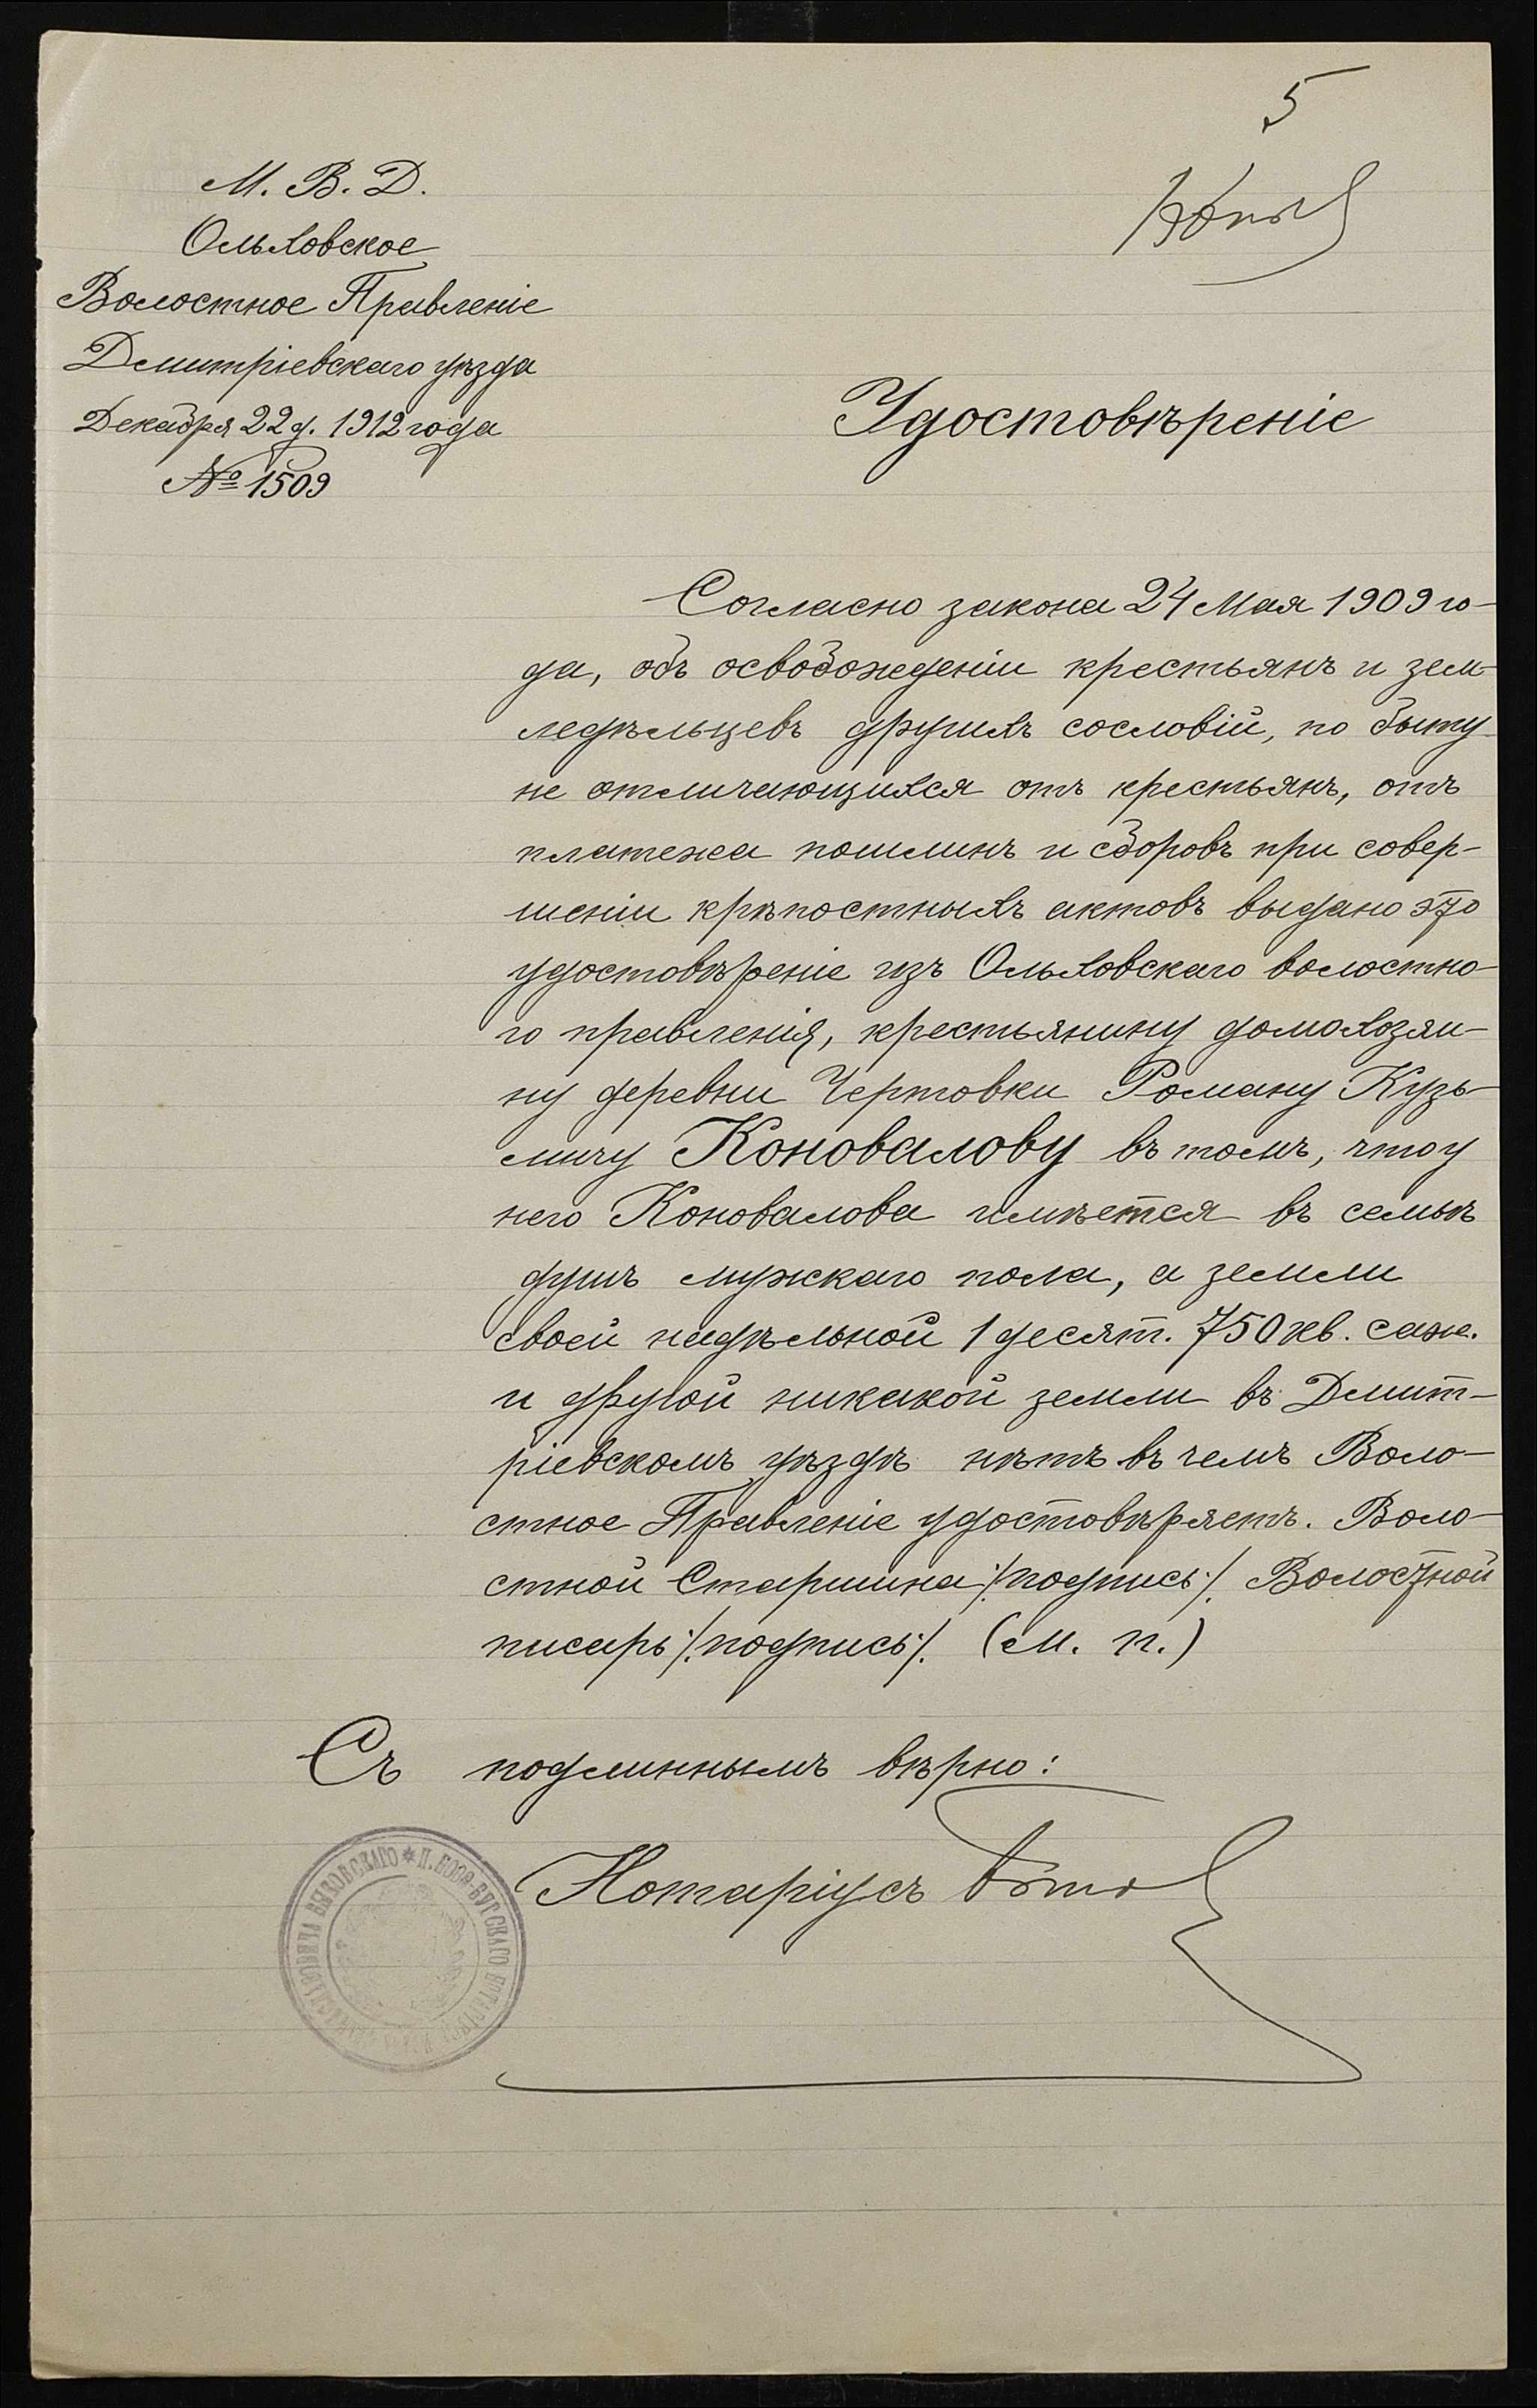 5
Копія
М. В. Д.
Ольховское
Волостное Правленіе
Дмитріевскаго уѣзда
Декабря 22 д. 1912 года
№ 1509
Удостовѣреніе
Согласно закона 24 Мая 1909 го-
да, объ освобожденіи крестьянъ и зем-
ледѣльцевъ другихъ сословій, по быту
не отличающихся отъ крестьянъ, отъ
платежа пошлинъ и сборовъ при совер-
шеніи крѣпостныхъ актовъ выдано это
удостовѣреніе изъ Ольховскаго волостно-
го правленія, крестьянину домохозяи-
ну деревни Чертовки Роману Кузь-
мичу Коновалову въ томъ, что у
него Коновалова имѣется въ семьѣ
душъ мужскаго пола, а земли
своей надѣльной 1 десят. 750 кв. саж.
и другой никакой земли въ Дмит-
ріевскомъ уѣздѣ нѣтъ въ чемъ Воло-
стное Правленіе удостовѣряетъ. Воло-
стной Старшина /:подпись:/ Волостной
писарь /:подпись:/. (М. п.)
Съ подлиннымъ вѣрно:
Нотаріусъ